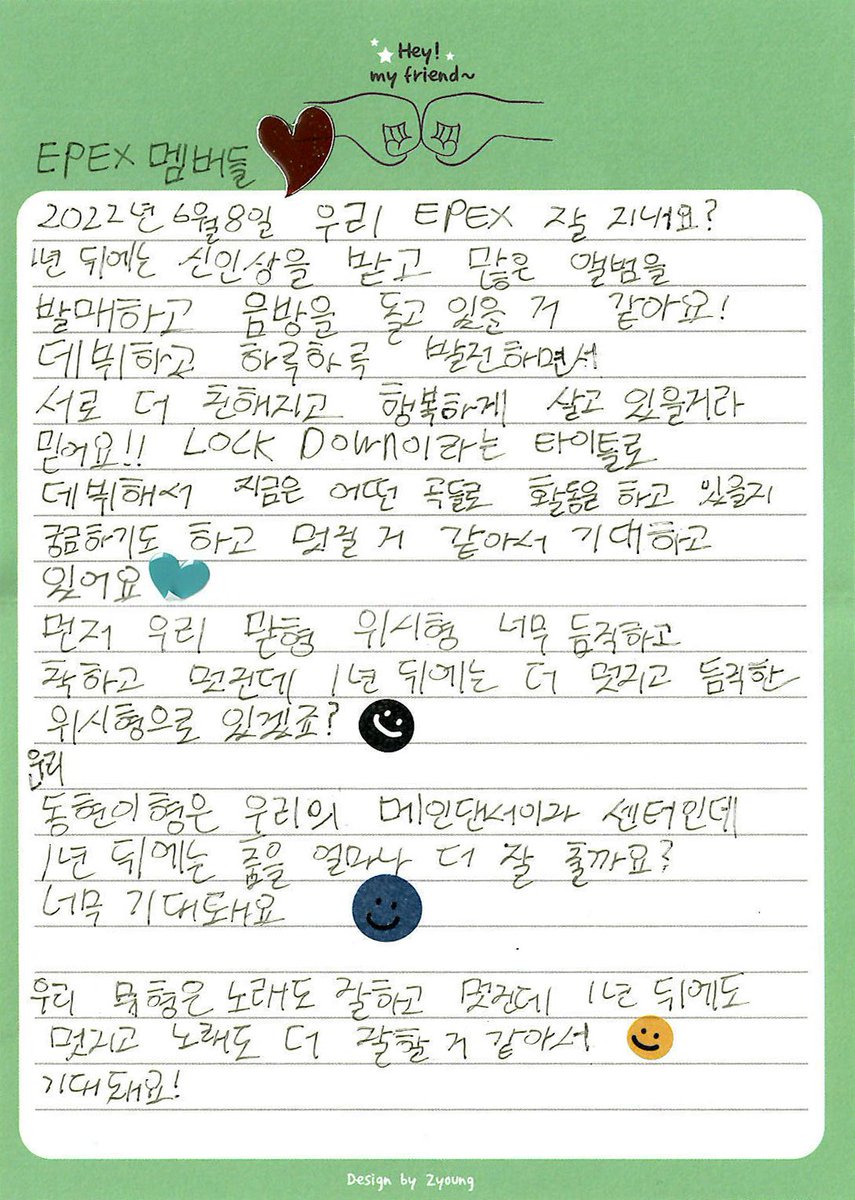 Hey!
my friend~
EPEX 멤버들
2022년 6월8일 우리 EPEX 잘 지내요?
1년 뒤에는 신인상을 받고 많은 앨범을
발매하고 음방을 돌고 있을 거 같아요!
데뷔하고 하루하루 발전하면서
서로 더 친해지고 행복하게 살고 있을거라
믿어요!! LOCK DOWN이라는 타이틀로
데뷔해서 지금은 어떤 곡들로 활동을 하고 있을지
궁금하기도 하고 멋질 거 같아서 기대하고
있어요
먼저 우리 맏형 위시형 너무 듬직하고
착하고 멋진데 1년 뒤에는 더 멋지고 듬직한
위시형으로 있겠죠?
우리
동현이형은 우리의 메인댄서이자 센터인데
1년 뒤에는 춤을 얼마나 더 잘 출까요?
너무 기대돼요
우리 뮤형은 노래도 잘하고 멋진데 1년 뒤에도
멋지고 노래도 더 잘할 거 같아서
기대돼요!
Design by 2young